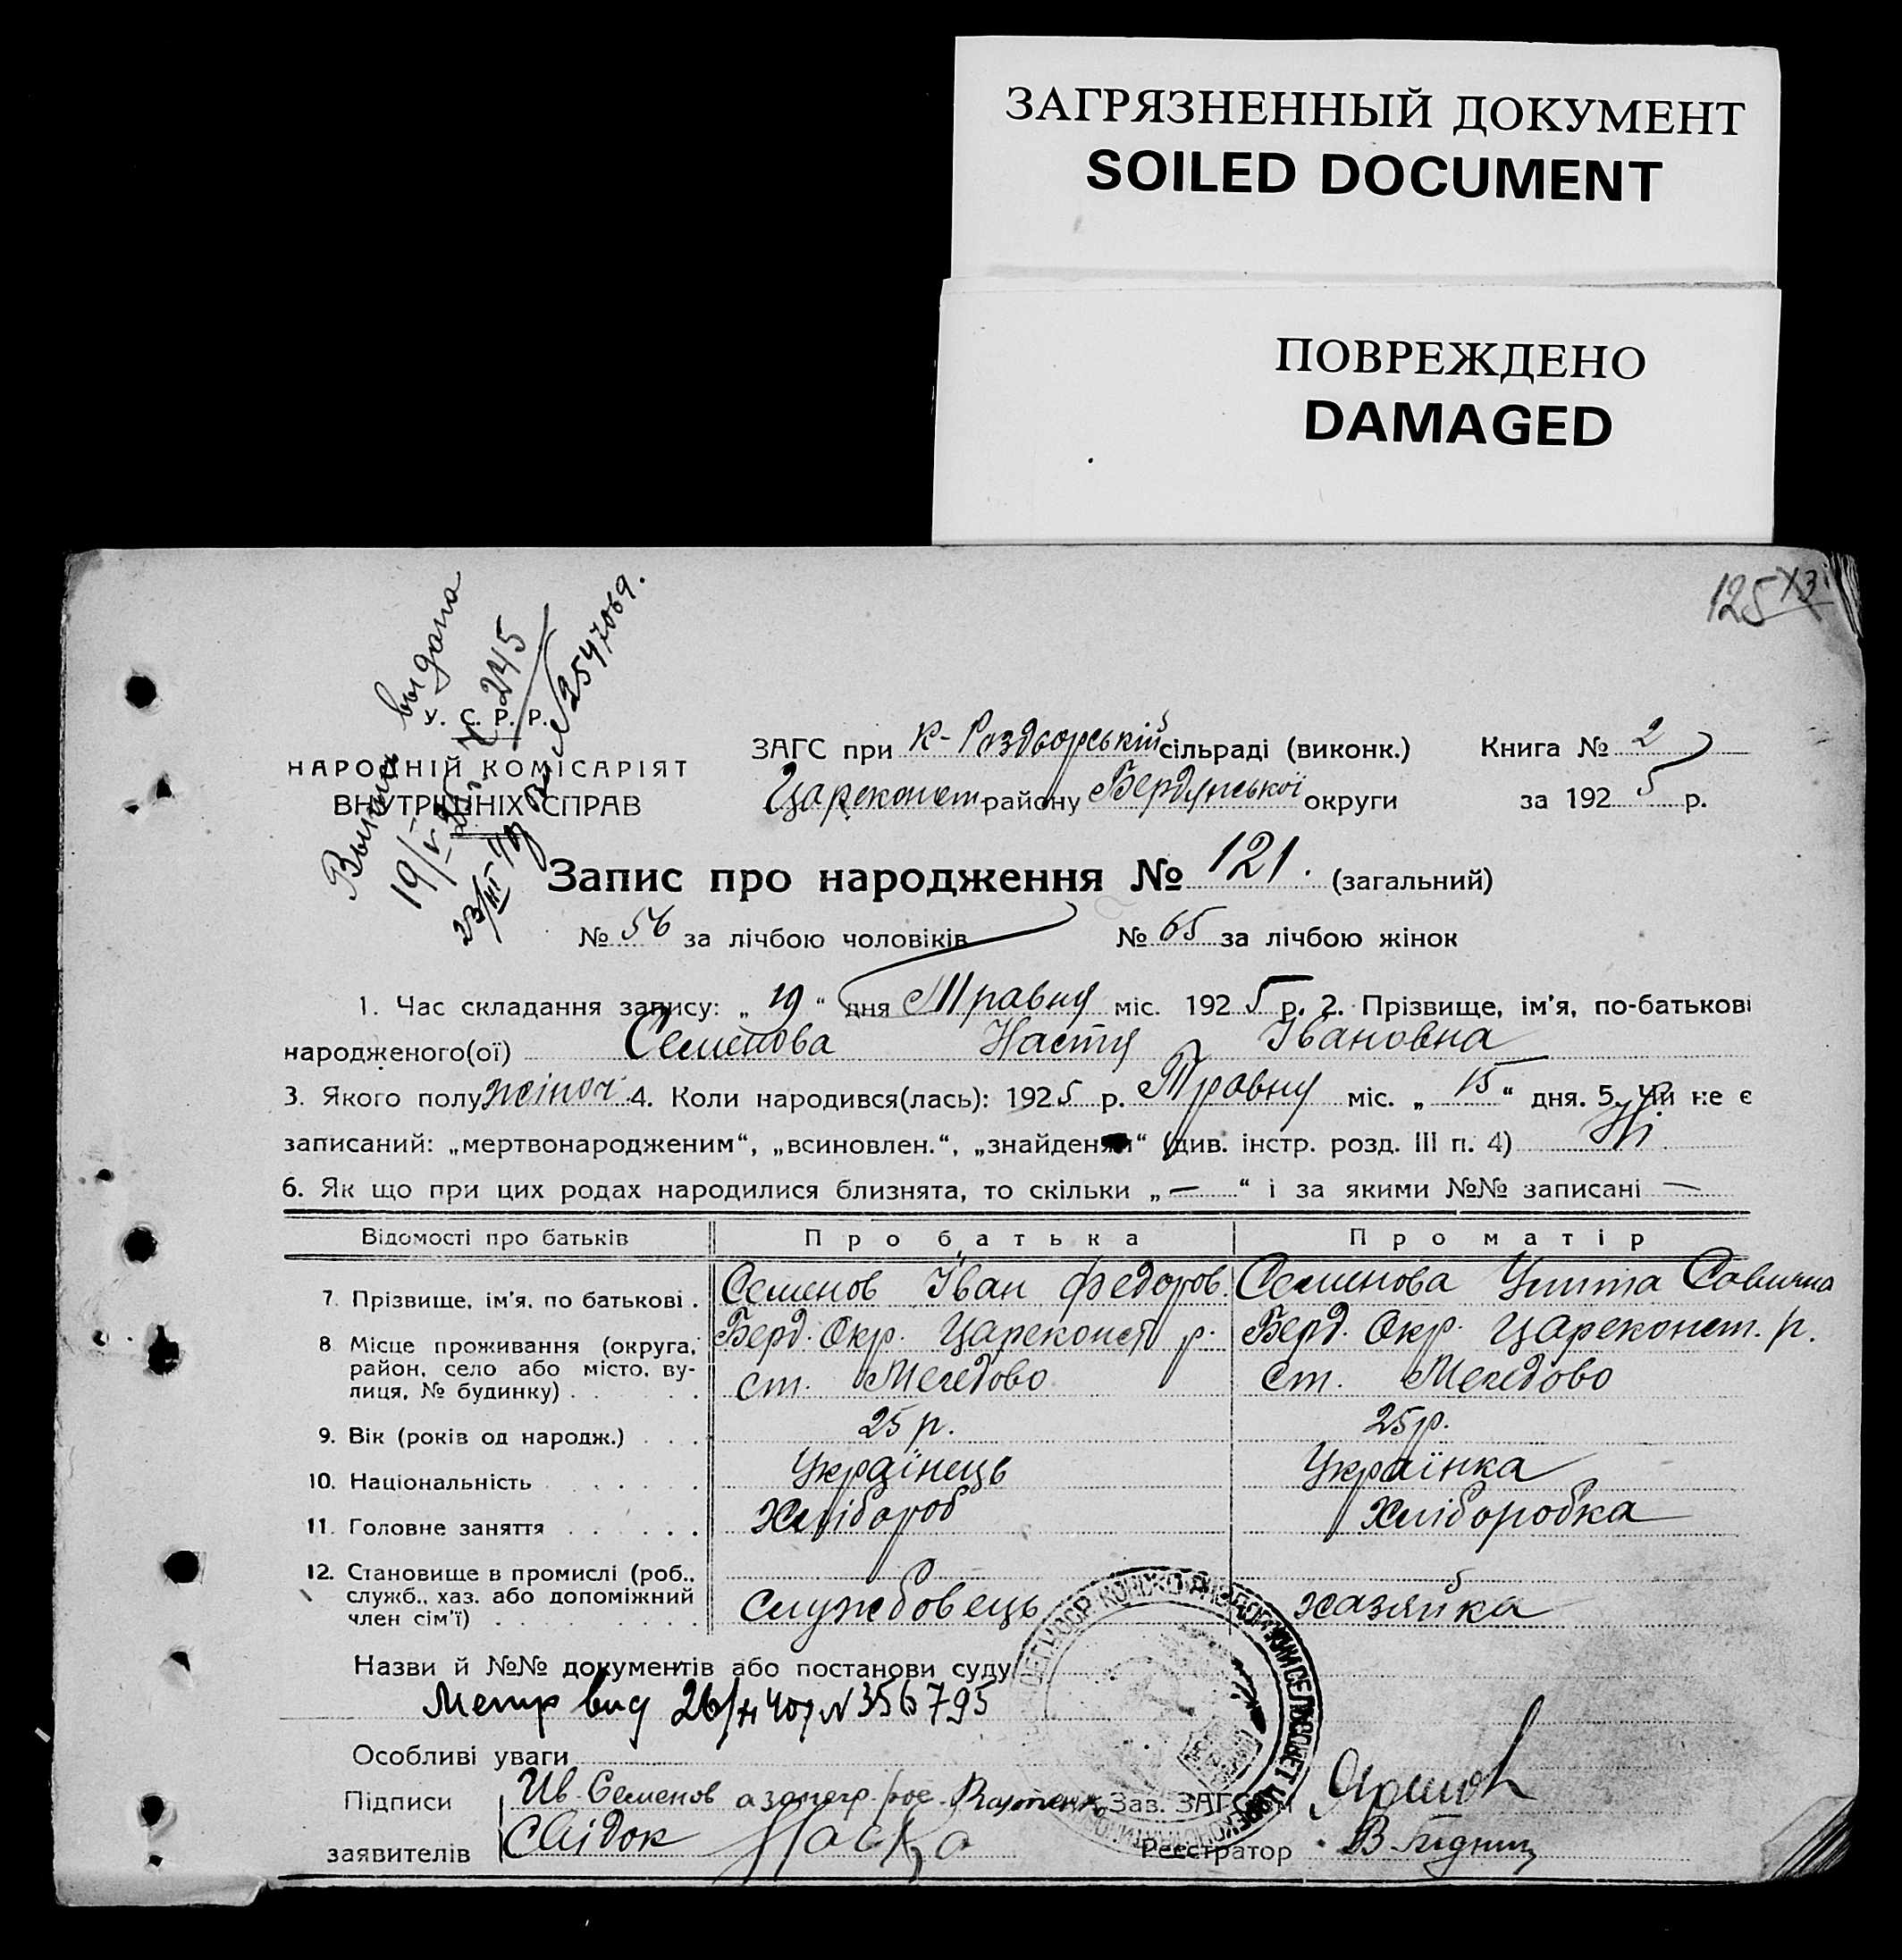 ЗАГРЯЗНЕННЫЙ ДОКУМЕНТ
SOILED DOCUMENT
ПОВРЕЖДЕНО
DAMAGED
125
Выпись выдана
19/V 245
2547069.
У. С. Р. Р.
НАРОДНІЙ КОМІСАРІЯТ
ВНУТРІШНІХ СПРАВ
ЗАГС при К-Роздорській сільраді (виконк.) Книга № 2
Цареконст району Бердянської округи за 1925 р.
Запис про народження № 121. (загальний)
№ 56 за лічбою чоловіків № 65 за лічбою жінок
1. Час складання запису: „19“ дня Травня міс. 1925 р. 2. Прізвище, ім'я, по-батькові
народженого(ої) Семенова Настя Івановна
3. Якого полу жіноч 4. Коли народився(лась): 1925 р. Травня міс. „15“ дня. 5. Чи не є
записаний: „мертвонародженим“, „всиновлен.“, „знайденим“ (див. інстр. розд. III п. 4) Ні
6. Як що при цих родах народилися близнята, то скільки „—“ і за якими №№ записані —
Відомості про батьків Про батька Про матір
7. Прізвище, ім'я, по батькові . Семенов Іван Федоров. Семенова Савична
8. Місце проживання (округа, район, село або місто, вулиця, № будинку) . Берд. Окр. Цареконст р. Берд. Окр. Цареконст. р.
ст. Магедово ст. Магедово
9. Вік (років од народж.) . . . 25 р. 25 р.
10. Національність . . . . . . Українець Українка
11. Головне заняття . . . . . . Хлібороб Хліборобка
12. Становище в промислі (роб., служб., хаз. або допоміжний член сім'ї) . . . . . . . . Службовець хазяйка
Назви й №№ документів або постанови суду
Метр вид 26/ 40г N 356795
Особливі уваги
Підписи Ив. Семенов а Зав. ЗАГС'ом
заявителів свідок Реєстратор В.